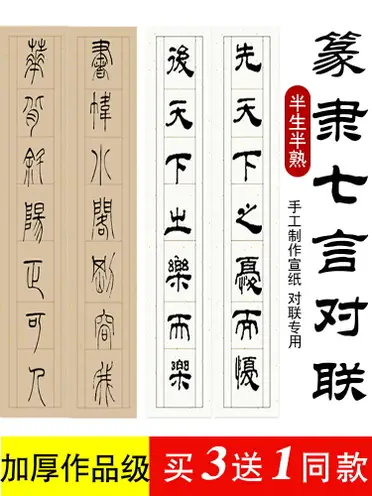 篆隶七言对联
半生半熟
手工制作宣纸 对联专用
先天下之憂而憂
後天下之樂而樂
書幃閣剛容
華斜陽正可人
加厚作品级
买3送1同款